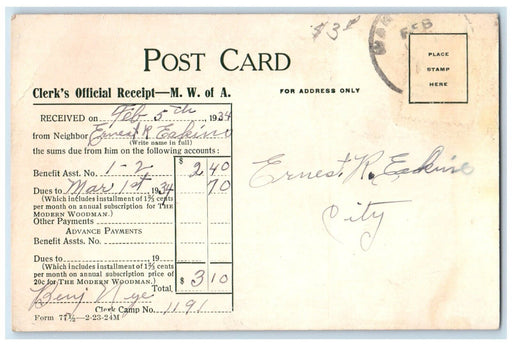 $3¢
FEB
POST CARD
PLACE
STAMP
HERE
Clerk's Official Receipt—M. W. of A.
FOR ADDRESS ONLY
RECEIVED on Feb 5th, 1934
from Neighbor Ernest R Erskine
(Write name in full)
the sums due from him on the following accounts:
Benefit Asst. No. 1-2 $ 2 40
Dues to Mar 1st, 1934 70
(Which includes installment of 1⅔ cents
per month on annual subscription for THE
MODERN WOODMAN.)
Other Payments
ADVANCE PAYMENTS
Benefit Assts. No.
Dues to, 19
(Which includes installment of 1⅔ cents
per month on annual subscription price of
20c for THE MODERN WOODMAN.)
Total, $ 3 10
Benj Nye
Clerk Camp No. 1191
Form 77½—2-23-24M
Ernest R. Erskine
City